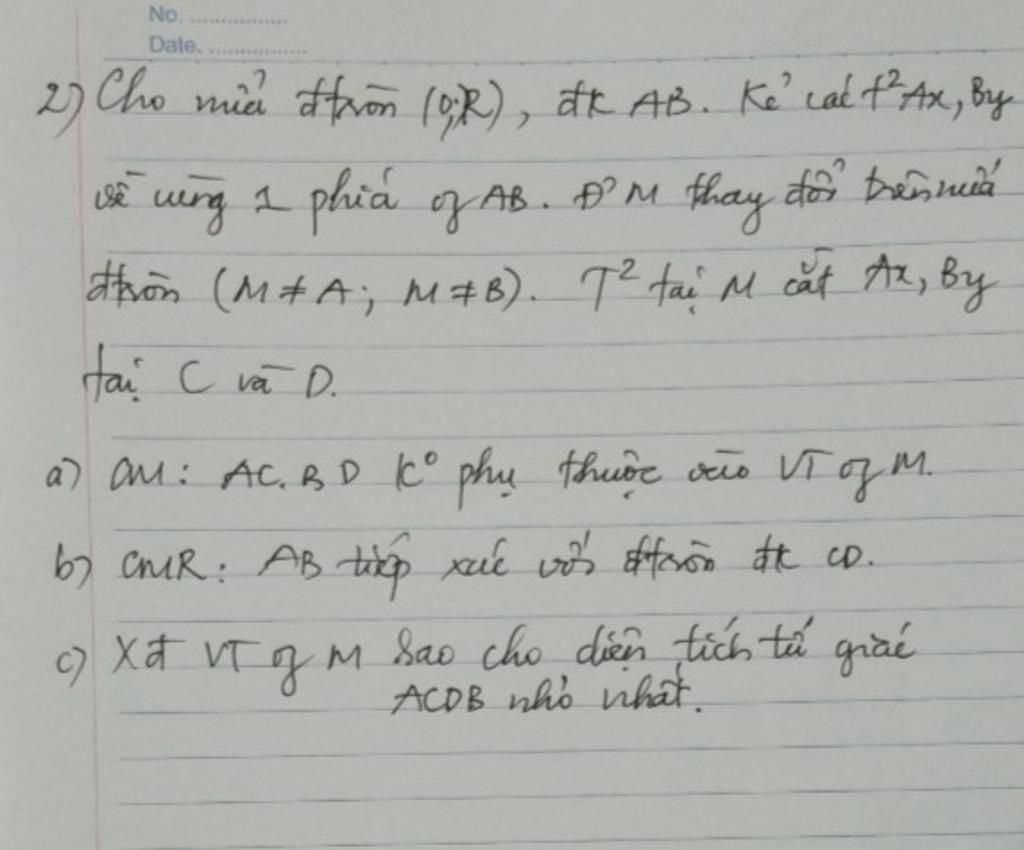 No. ................
Date. ................
2) Cho nửa đtròn (O;R), đk AB. Kẻ các t²Ax, By
về cùng 1 phía of AB. Đ' M thay đổi trên nửa
đtròn (M ≠ A; M ≠ B). T² tại M cắt Ax, By
tại C và D.
a) CM: AC. BD k° phụ thuộc vào VT of M.
b) CMR: AB tiếp xúc với đtròn đk CD.
c) Xđ VT of M sao cho diện tích tứ giác
ACDB nhỏ nhất.